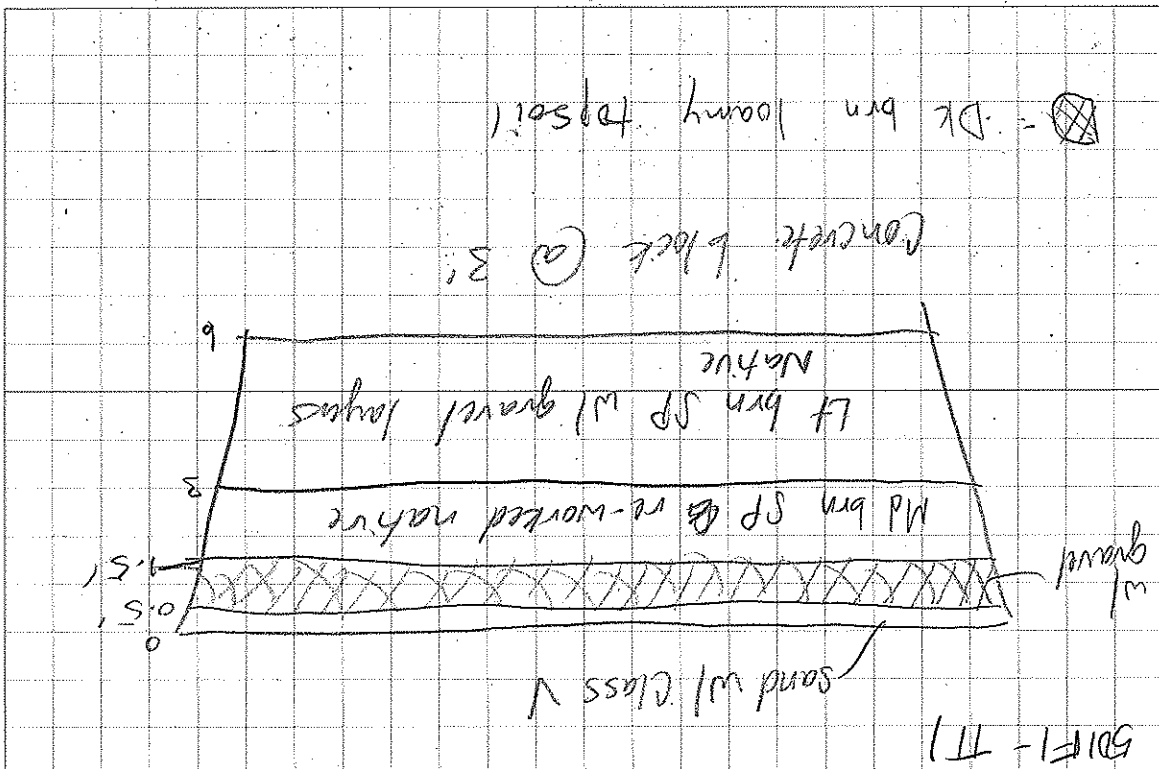 501F1-TT1
Sand w/ Class V
w/ gravel
0
0.5'
1.5'
Md brn SP re-worked native
3
Lt brn SP w/ gravel layers
Native
6
Concrete block @ 3'
= Dk brn loamy topsoil